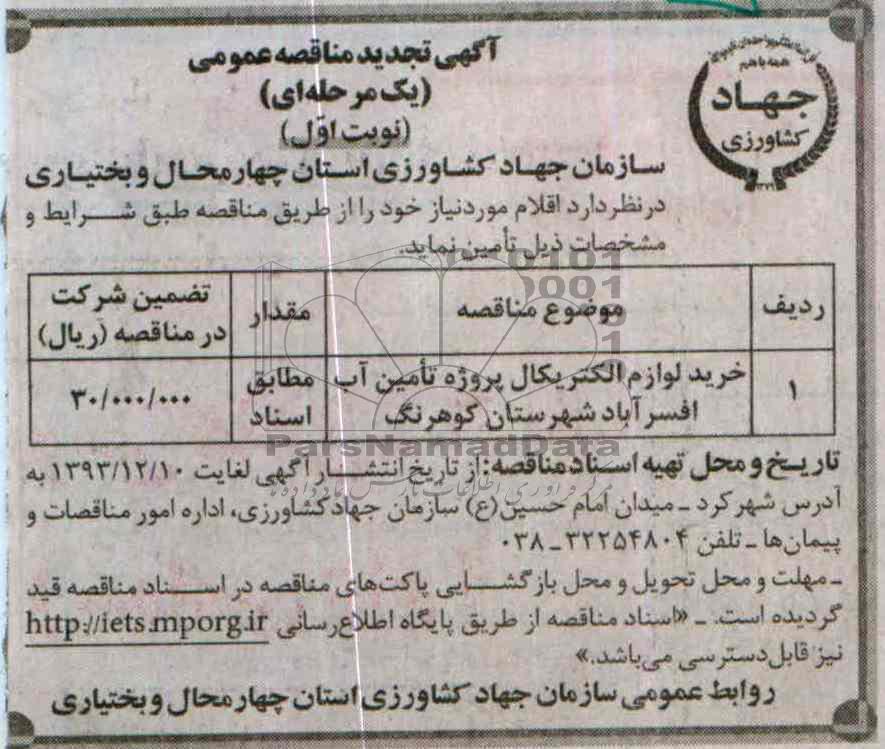 آگهی تجدید مناقصه عمومی
(یک مرحله‌ای)
(نوبت اوّل)
همه با هم
جهاد
کشاورزی
سازمان جهاد کشاورزی استان چهارمحال و بختیاری
درنظر دارد اقلام موردنیاز خود را از طریق مناقصه طبق شرایط و
مشخصات ذیل تأمین نماید.
ردیف موضوع مناقصه مقدار تضمین شرکت در مناقصه (ریال)
۱ خرید لوازم الکتریکال پروژه تأمین آب افسرآباد شهرستان کوهرنگ مطابق اسناد ۳۰/۰۰۰/۰۰۰
ParsNamadData
تاریخ و محل تهیه اسناد مناقصه: از تاریخ انتشار آگهی لغایت ۱۳۹۳/۱۲/۱۰ به
آدرس شهرکرد ـ میدان امام حسین(ع) سازمان جهاد کشاورزی، اداره امور مناقصات و
پیمان‌ها ـ تلفن ۳۲۲۵۴۸۰۴ ـ ۰۳۸
ـ مهلت و محل تحویل و محل بازگشایی پاکت‌های مناقصه در اسناد مناقصه قید
گردیده است. ـ «اسناد مناقصه از طریق پایگاه اطلاع‌رسانی http://iets.mporg.ir
نیز قابل دسترسی می‌باشد.»
روابط عمومی سازمان جهاد کشاورزی استان چهارمحال و بختیاری